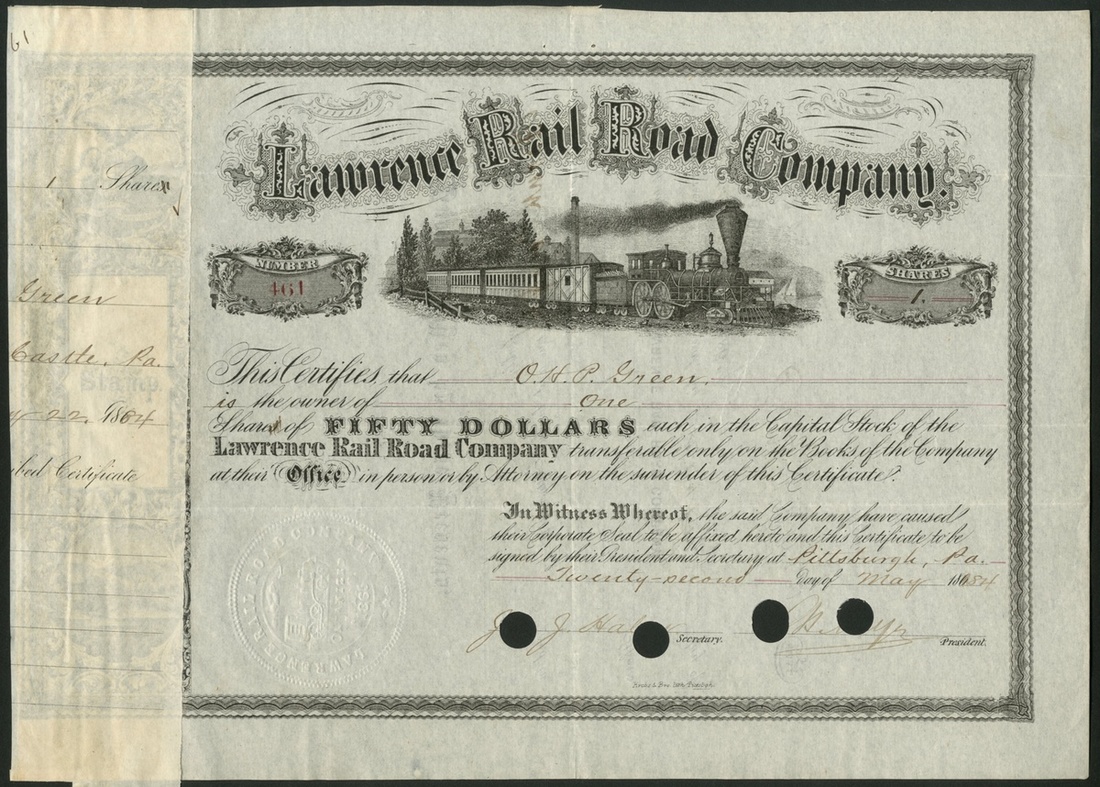 61
1 Shares
Green
Castle, Pa.
22, 1884
Certificate
Lawrence Rail Road Company.
NUMBER
461
SHARES
1.
This Certifies, that O. H. P. Green.
is the owner of One
Share of FIFTY DOLLARS each in the Capital Stock of the
Lawrence Rail Road Company transferable only on the Books of the Company
at their Office in person or by Attorney on the surrender of this Certificate.
In Witness Whereof, the said Company have caused
their Corporate Seal to be affixed hereto and this Certificate to be
signed by their President and Secretary at Pittsburgh, Pa.
Twenty-second day of May 1884
J. J.
Secretary.
President.
RAIL ROAD COMPANY
LAWRENCE